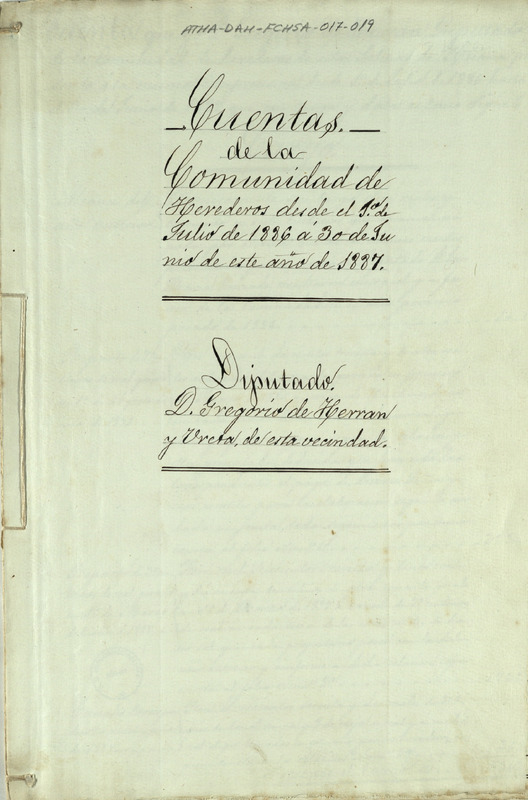 ATHA-DAH-FCHSA-017-019
Cuentas.
de la
Comunidad de
Herederos desde el 1.º de
Julio de 1886 á 30 de Ju
nio de este año de 1887.
Diputado.
D. Gregorio de Herran
y Ureta, de esta vecindad.